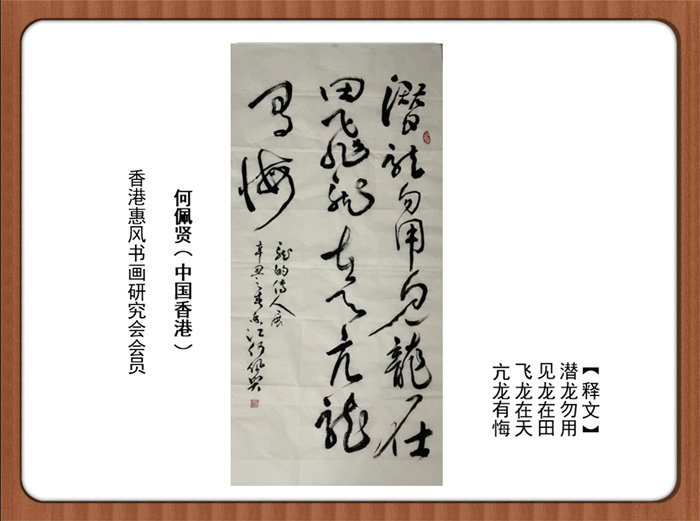 【释文】
潜龙勿用
见龙在田
飞龙在天
亢龙有悔
潛龙勿用见龍在
田飛龙在天亢龙
有悔
龙的傳人展
辛丑之春香江何佩贤
何佩贤（中国香港）
香港惠风书画研究会会员